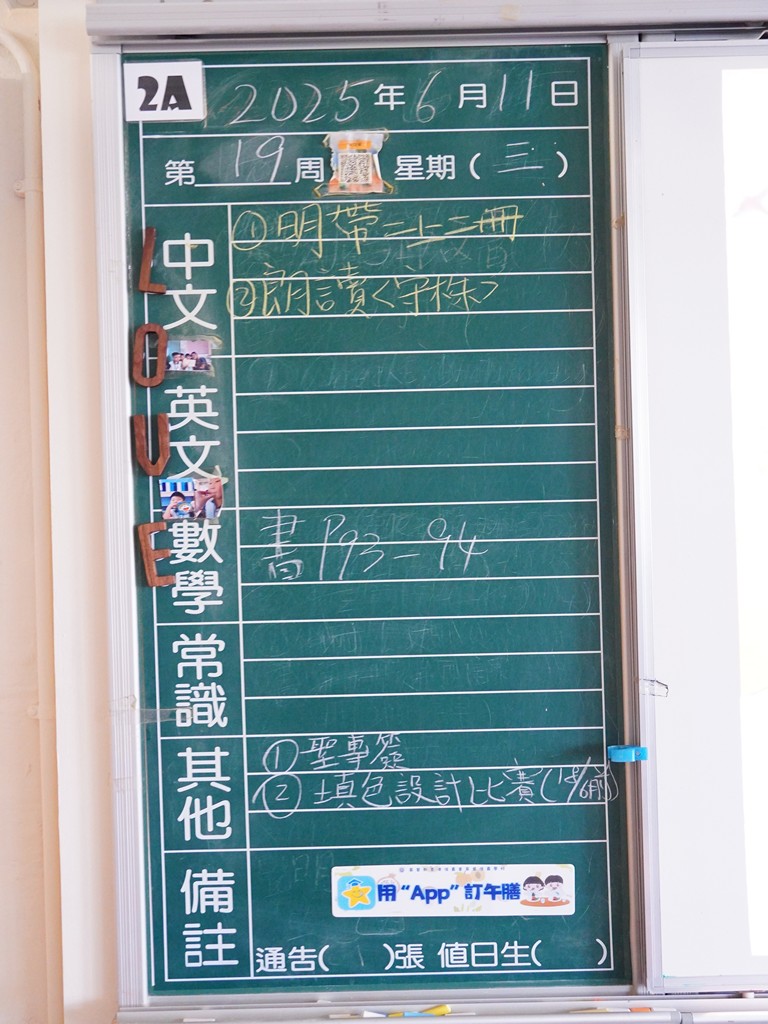 2A
2025年6月11日
第19周 星期(三)
LOVE
中文
①明帶二上二冊
②朗讀<守株>
英文
數學
書P93-94
常識
其他
①聖專簽
②填色設計比賽(18/6前)
備註
用“App”訂午膳
通告( )張 值日生( )